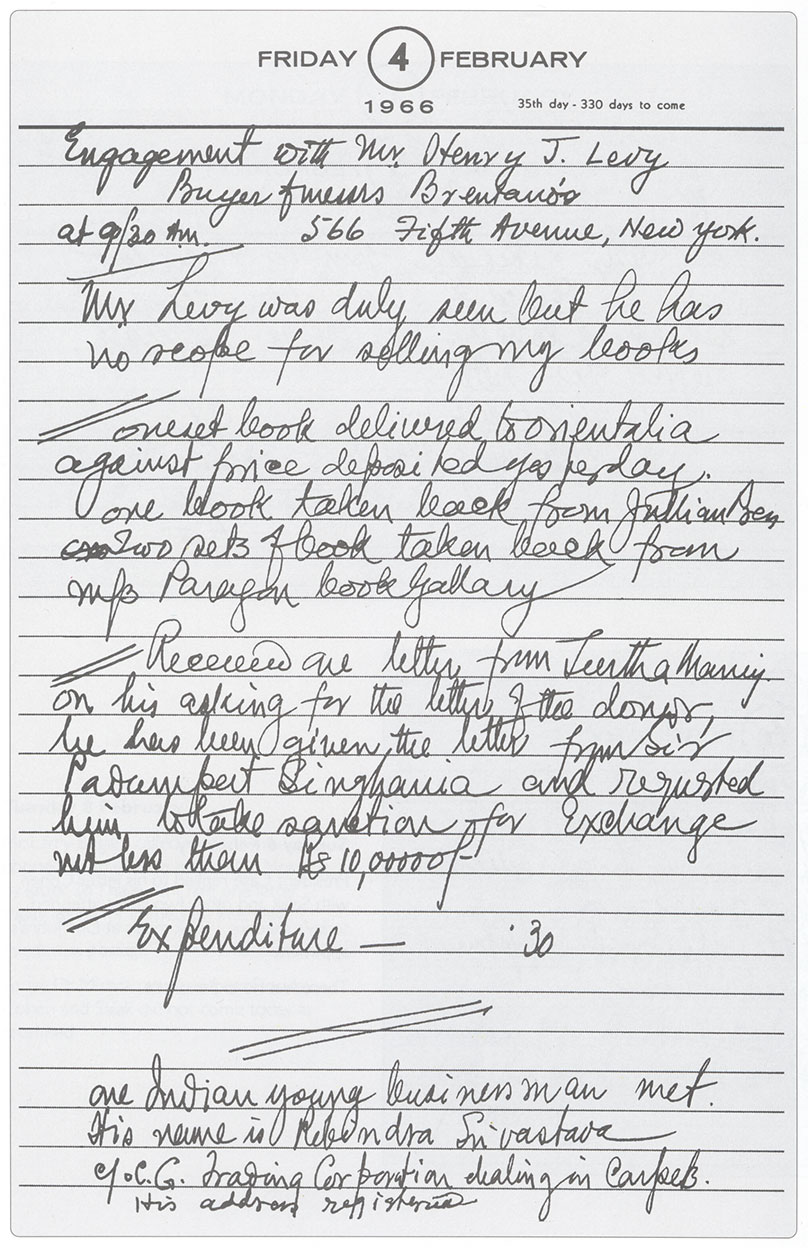 FRIDAY 4 FEBRUARY
1966 35th day - 330 days to come
Engagement with Mr. Henry J. Levy
Buyer Brentano's
at 9/30 Am. 566 Fifth Avenue, New York.
Mr Levy was duly seen but he has
no scope for selling my books
one set book delivered to orientalia
against price deposited yesterday.
one book taken back from
Two sets of book taken back from
m/s Paragon book Gallary
Received one letter from Teertha
on his asking for the letter of the donor,
he has been given the letter from Sir
Padampat Singhania and requested
him to take sanction for Exchange
not less than Rs 10,00000/-
Expenditure — .30
one Indian young business man met.
His name is Rabindra Srivastava
c/o. C.G. Trading Corporation dealing in Carpets.
His address registered